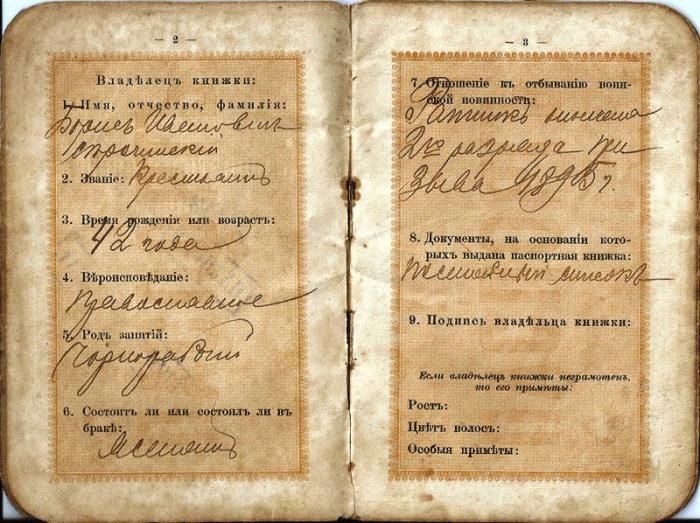 — 2 —
Владѣлецъ книжки:
1. Имя, отчество, фамилія:
Борисъ
2. Званіе: Крестьянинъ
3. Время рожденія или возрастъ:
42 года
4. Вѣроисповѣданіе:
Православное
5. Родъ занятій:
Чернорабочій
6. Состоитъ ли или состоялъ ли въ
бракѣ:
Женатъ
— 3 —
7. Отношеніе къ отбыванію воин-
ской повинности:
Ратникъ ополченія
2го разряда при
1895 г.
8. Документы, на основаніи кото-
рыхъ выдана паспортная книжка:
списокъ
9. Подпись владѣльца книжки:
Если владѣлецъ книжки неграмотенъ,
то его примѣты:
Ростъ:
Цвѣтъ волосъ:
Особыя примѣты: